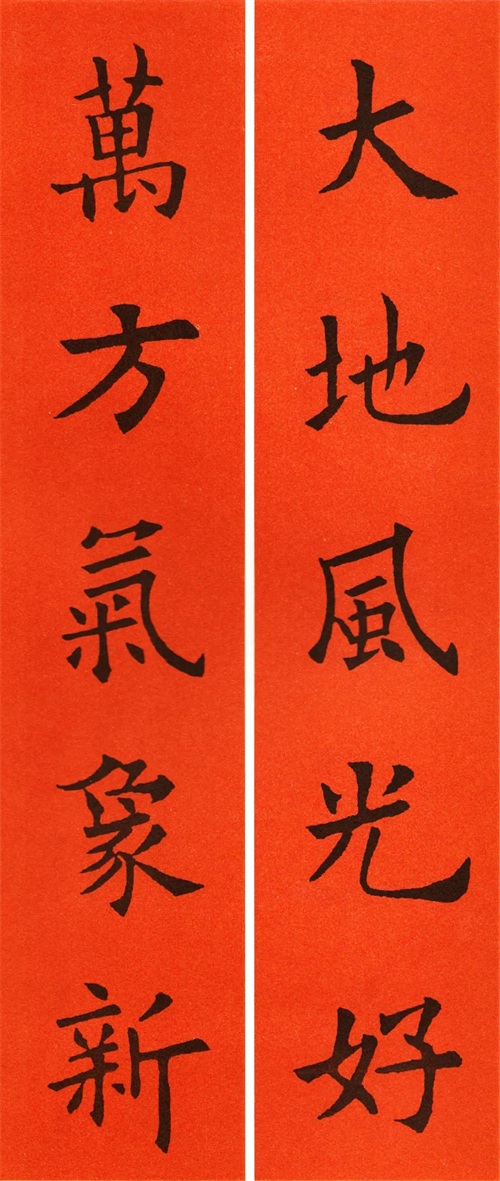 大地風光好
萬方氣象新